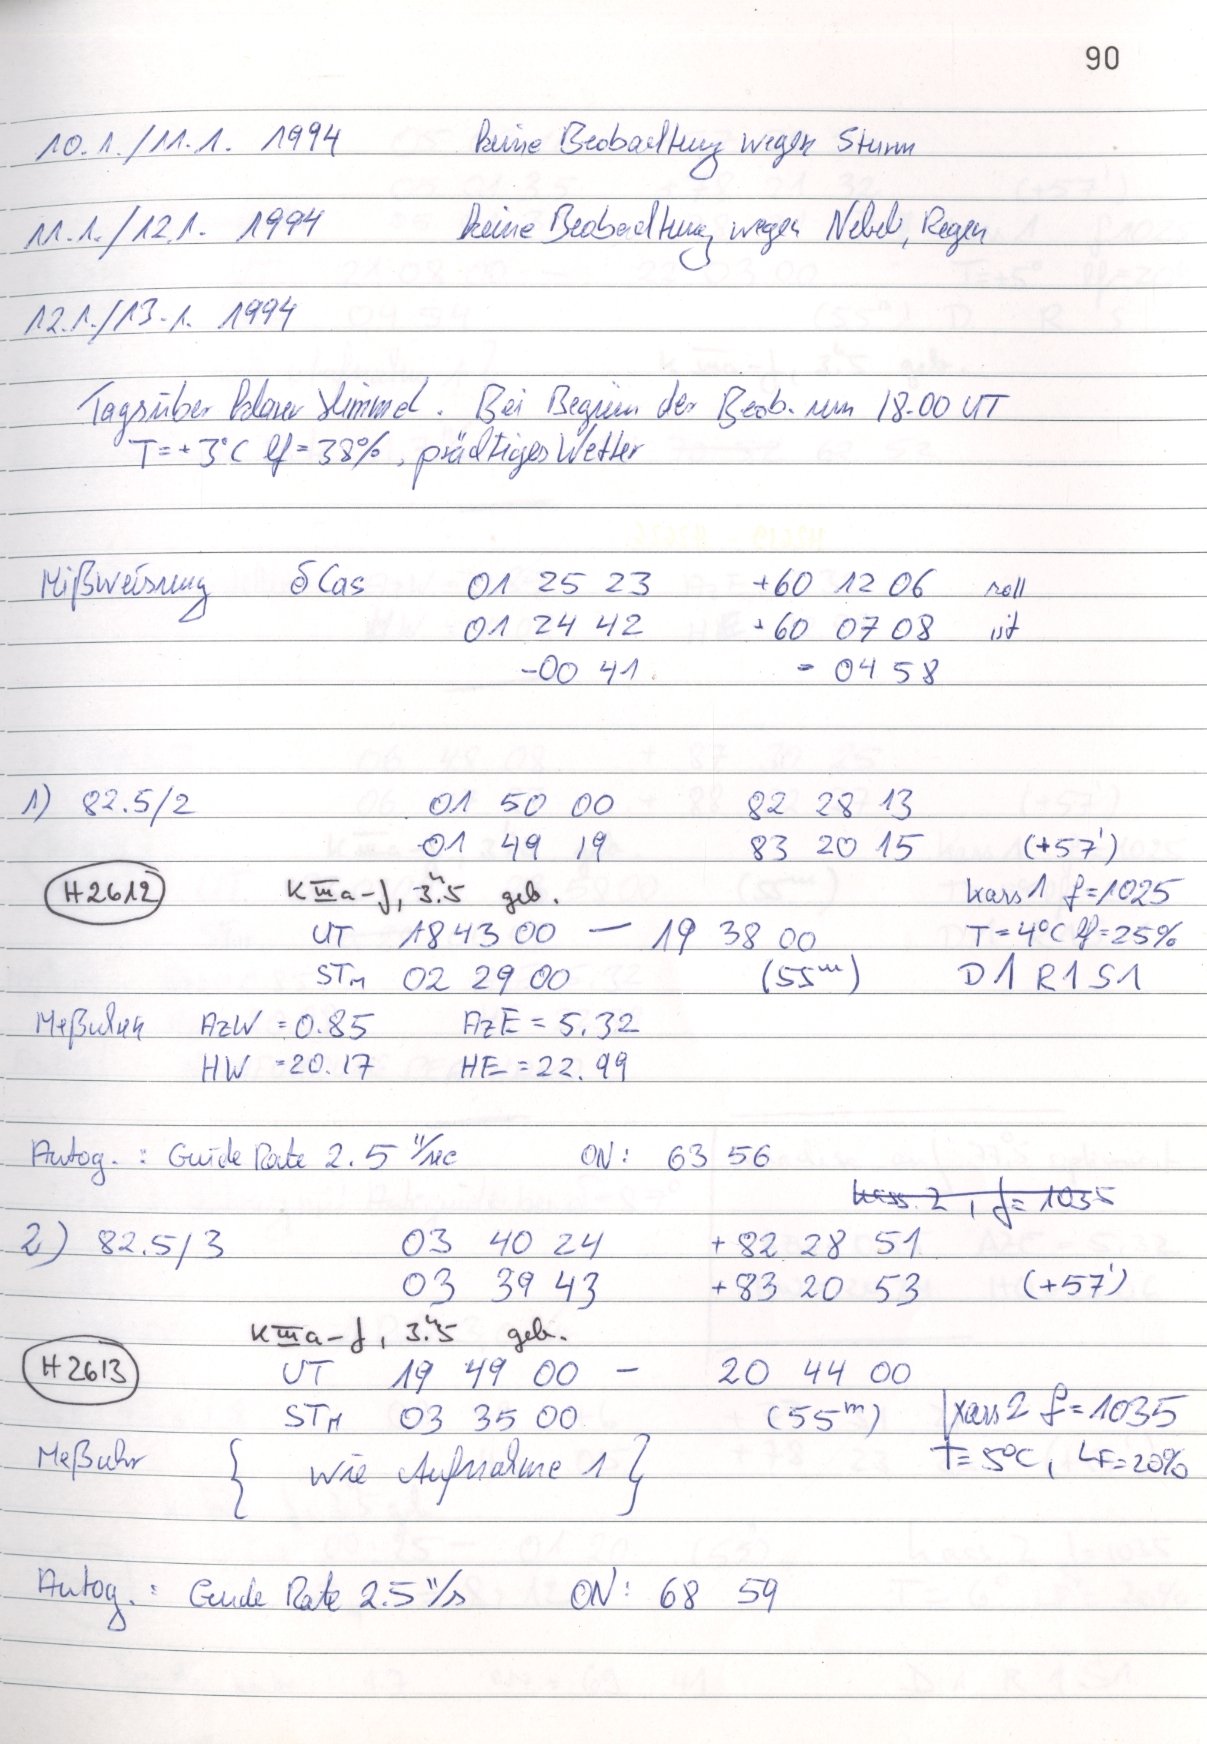 90
10.1./11.1. 1994 keine Beobachtung wegen Sturm
11.1./12.1. 1994 keine Beobachtung wegen Nebel, Regen
12.1./13.1. 1994
Tagsüber klarer Himmel. Bei Beginn der Beob. um 18.00 UT
T=+3°C lf=38%, prächtiges Wetter
Mißweisung δ Cas 01 25 23 +60 12 06 soll
01 24 42 +60 07 08 ist
-00 41 - 04 58
1) 82.5/2 01 50 00 82 28 13
01 49 19 83 20 15 (+57')
H2612 KIIIa-J, 3.5 geb. kass1 f=1025
UT 18 43 00 — 19 38 00 T=4°C lf=25%
STM 02 29 00 (55m) D1 R1 S1
Meßuhren AzW =0.85 AzE = 5.32
HW =20.17 HE=22.99
Autog. : Guide Rate 2.5"/sec ON: 63 56
kass. 2, f= 1035
2) 82.5/3 03 40 24 +82 28 51
03 39 43 +83 20 53 (+57')
KIIIa-J, 3.5 geb.
H2613 UT 19 49 00 — 20 44 00
STM 03 35 00 (55m) kass2 f=1035
Meßuhr { wie Aufnahme 1 } T=5°C, LF=20%
Autog. : Guide Rate 2.5"/s ON: 68 59